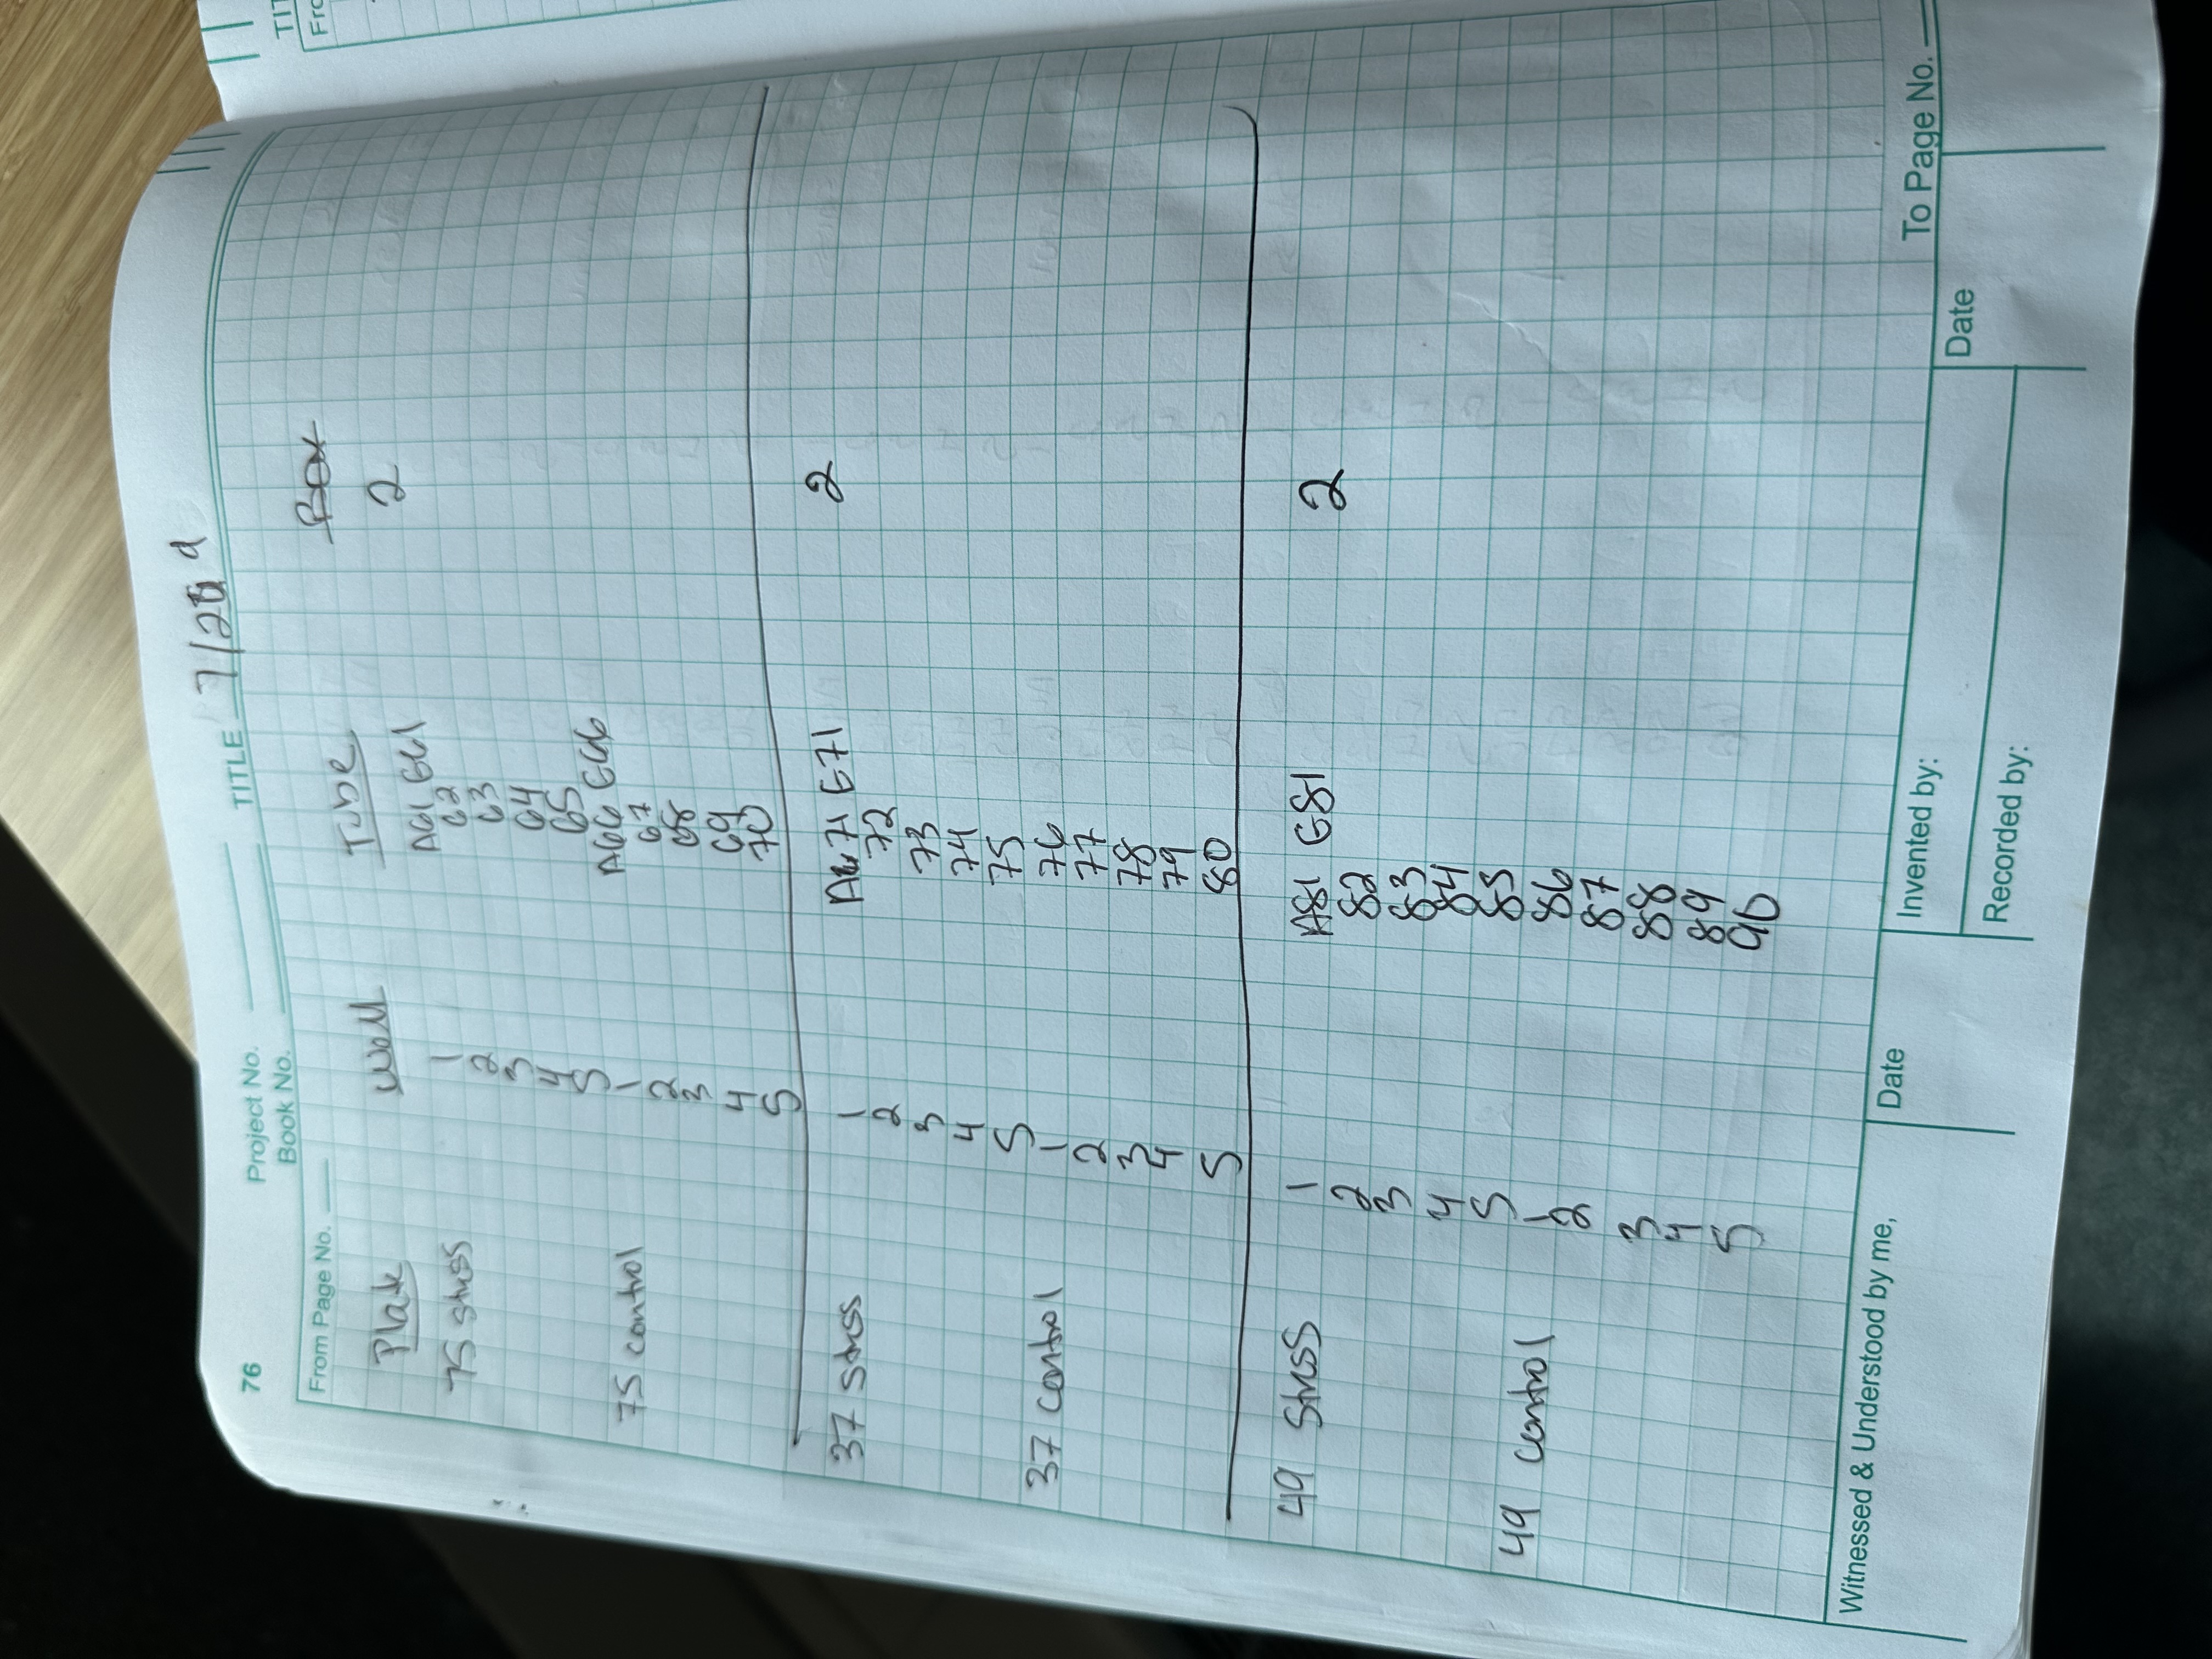 76
Project No.
Book No.
TITLE 7/28
From Page No.
Plate Well Tube Box
75 stress 1 A61 G61 2
2 62
3 63
4 64
5 65
75 control 1 A66 G66
2 67
3 68
4 69
5 70
37 stress 1 A71 G71 2
2 72
3 73
4 74
5 75
37 control 1 76
2 77
3 78
4 79
5 80
49 stress 1 A81 G81 2
2 82
3 83
4 84
5 85
49 control 1 86
2 87
3 88
4 89
5 90
To Page No.
Witnessed & Understood by me,
Date
Invented by:
Date
Recorded by: